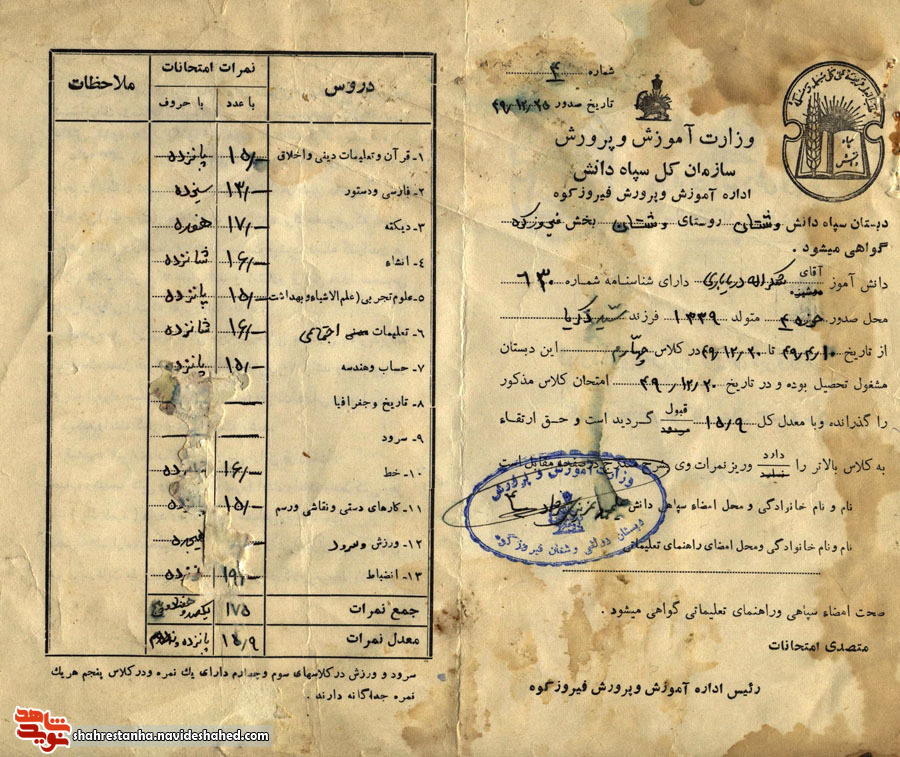 شماره ۴
تاریخ صدور ۴۹/۱۲/۲۵
وزارت آموزش و پرورش
سازمان کل سپاه دانش
اداره آموزش و پرورش فیروزکوه
سپاه دانش
دبستان سپاه دانش وشتان روستای وشتان بخش فیروزکوه
گواهی میشود .
دانش آموز آقای دوشیزه شکراله دریاباری دارای شناسنامه شماره ۶۳۰
محل صدور حوزه ۴ متولد ۱۳۳۹ فرزند سید ذکریا
از تاریخ ۴۹/۴/۱۰ تا ۴۹/۱۲/۲۰ در کلاس چهارم این دبستان
مشغول تحصیل بوده و در تاریخ ۴۹/۱۲/۲۰ امتحان کلاس مذکور
را گذرانده وبا معدل کل ۱۵/۹ قبول مردود گردیده است و حق ارتقاء
به کلاس بالاتر را دارد ندارد وریز نمرات وی بشرح مندرج در صفحه مقابل است
نام و نام خانوادگی و محل امضاء سپاهی دانش
نام و نام خانوادگی ومحل امضای راهنمای تعلیماتی
وزارت آموزش و پرورش
دبستان دولتی وشتان فیروزکوه
صحت امضاء سپاهی وراهنمای تعلیماتی گواهی میشود .
متصدی امتحانات
رئیس اداره آموزش وپرورش فیروزکوه
دروس نمرات امتحانات ملاحظات
با عدد با حروف
۱- قرآن و تعلیمات دینی و اخلاق ۱۵/- پانزده
۲- فارسی ودستور ۱۳/- سیزده
۳- دیکته ۱۷/- هفده
۴- انشاء ۱۶/- شانزده
۵- علوم تجربی (علم الاشیاء وبهداشت ۱۵/- پانزده
۶- تعلیمات مدنی اجتماعی ۱۶/- شانزده
۷- حساب وهندسه ۱۵/- پانزده
۸- تاریخ و جغرافیا —
۹- سرود —
۱۰- خط ۱۶/-
۱۱- کارهای دستی و نقاشی ورسم ۱۵/-
۱۲- ورزش وسرود
۱۳- انضباط ۱۹/- نوزده
جمع نمرات ۱۷۵
معدل نمرات ۱۵/۹ پانزده و نه دهم
سرود و ورزش در کلاسهای سوم وچهارم دارای یک نمره ودرکلاس پنجم هریک
نمره جداگانه دارند .
نوید شاهد
shahrestanha.navideshahed.com